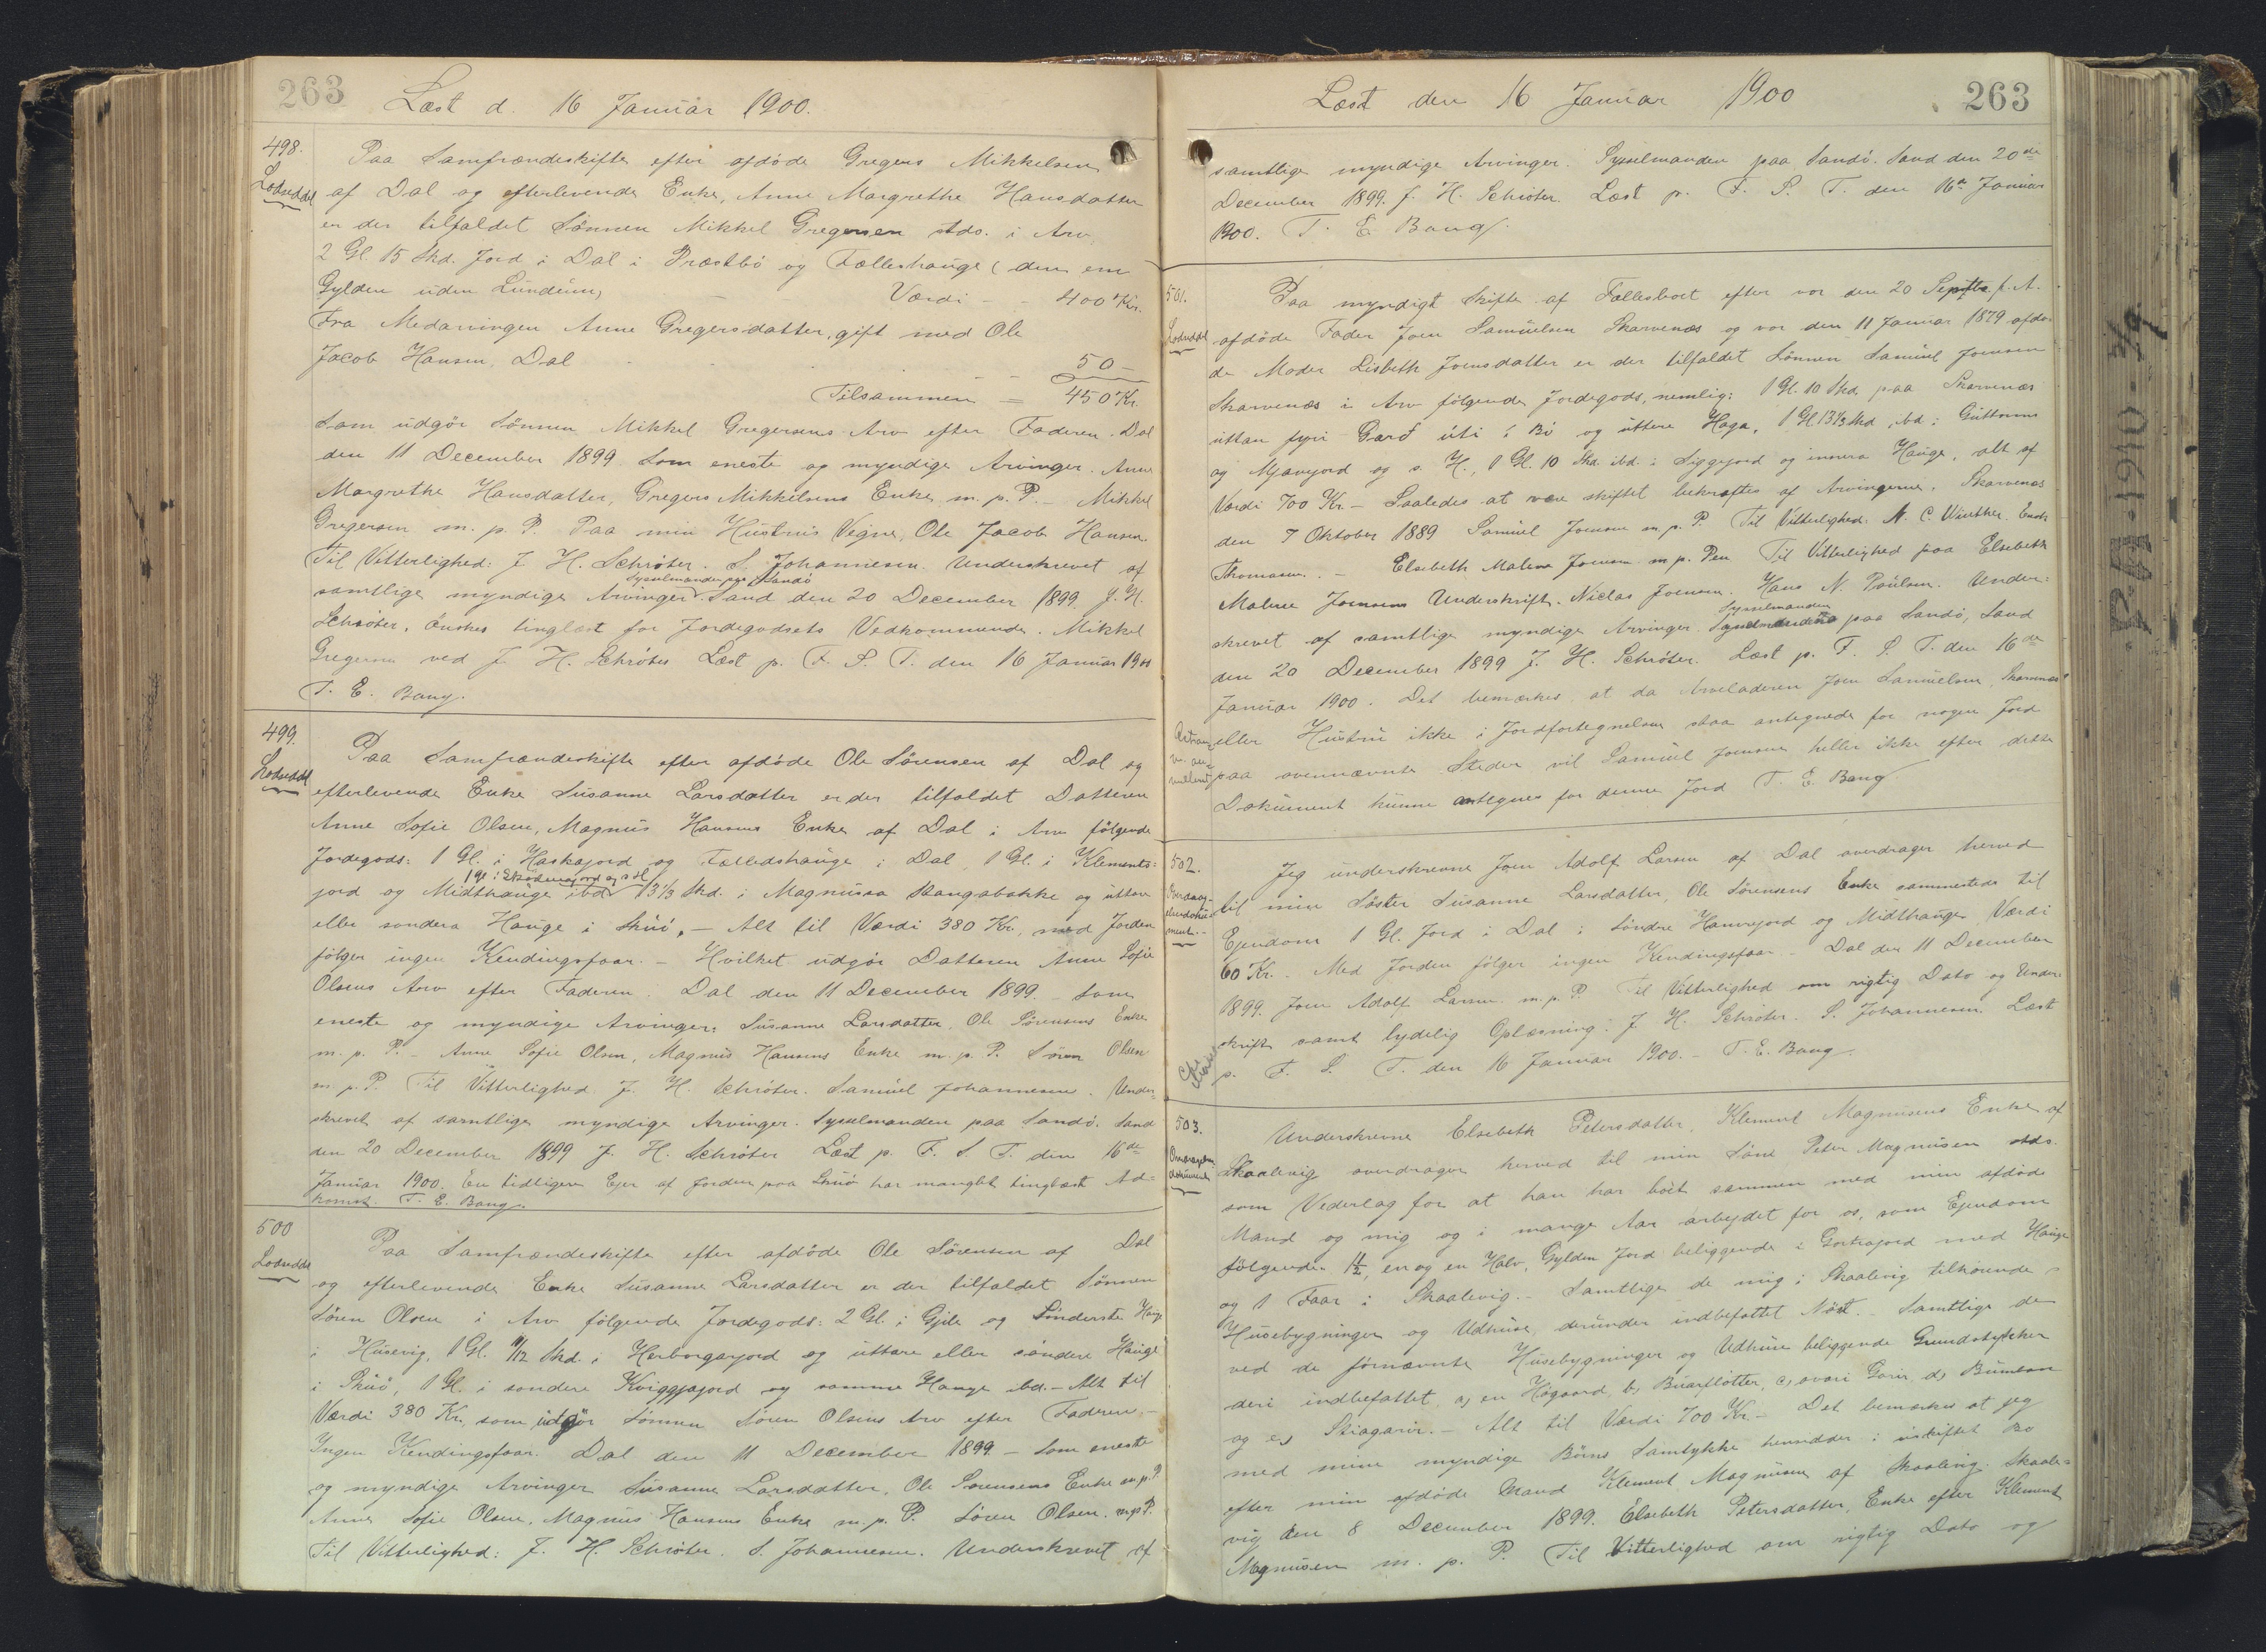 263
Læst d. 16 Januar 1900.
498.
Lodseddel
Paa Samfrændeskifte efter afdøde Gregers Mikkelsen
af Dal og efterlevende Enke, Anne Margrethe Hansdatter
er der tilfaldet Sønnen Mikkel Gregersen stds. i Arv
2 Gl. 15 Skd. Jord i Dal i Præstbø og Fælleshauge (den ene
Gylden uden Lundum) Værdi - - 400 Kr.
Fra Medarvingen Anne Gregersdatter, gift med Ole
Jacob Hansen, Dal - - - 50 -
Tilsammen = 450 Kr.
Som udgør Sønnen Mikkel Gregersens Arv efter Faderen. Dal
den 11 December 1899. Som eneste og myndige Arvinger. Anne
Margrethe Hansdatter, Gregers Mikkelsens Enke m. p. P. - Mikkel
Gregersen m. p. P. Paa min Hustrus Vegne, Ole Jacob Hansen.
Til Vitterlighed: J. H. Schrøter. S. Johannesen. Underskrevet af
Sysselmanden paa Sandø
samtlige myndige Arvinger. Sand den 20 December 1899. J. H.
Schrøter. Ønskes tinglæst for Jordegodsets Vedkommende. Mikkel
Gregersen ved J. H. Schrøter Læst p. F. S. T. den 16 Januar 1900
T. E. Bang.
499.
Lodseddel
Paa Samfrændeskifte efter afdøde Ole Sørensen af Dal og
efterlevende Enke Susanne Larsdatter er der tilfaldet Datteren
Anne Sofie Olsen, Magnus Hansens Enke af Dal i Arv følgende
Jordegods: 1 Gl. i Haskajord og Fælledshauge i Dal, 1 Gl. i Klements=
1 Gl. i Skødemajord og s H
jord og Midthauge ibd 13 1/3 Skd. i Magnussa Rangabakke og uttan
eller sondera Hauge i Skuø, - Alt til Værdi 380 Kr., med Jorden
følger ingen Kendingsfaar. - Hvilket udgør Datteren Anne Sofie
Olsens Arv efter Faderen. Dal den 11 December 1899 - Som
eneste og myndige Arvinger: Susanne Larsdatter, Ole Sørensens Enke
m. p. P. - Anne Sofie Olsen, Magnus Hansens Enke m. p. P. Søren Olsen
m. p. P. Til Vitterlighed J. H. Schrøter. Samuel Johannesen. Under=
skrevet af samtlige myndige Arvinger. Sysselmanden paa Sandø. Sand
den 20 December 1899 J. H. Schrøter Læst p. F. S. T. den 16de
Januar 1900. En tidligere Ejer af Jorden paa Skuø har manglet tinglæst Ad=
komst. T. E. Bang.
500
Lodseddel
Paa Samfrændeskifte efter afdøde Ole Sørensen af Dal
og efterlevende Enke Susanne Larsdatter er der tilfaldet Sønnen
Søren Olsen i Arv følgende Jordegods: 2 Gl. i Gjile og Sinderste Hauge
i Husevig, 1 Gl. 11/12 Skd. i Herborgarjord og uttare eller søndere Hauge
i Skuø, 1 Gl. i sondere Kviggjajord og samme Hauge ibd. - Alt til
Værdi 380 Kr., som udgør Sønnen Søren Olsens Arv efter Faderen. -
Ingen Kendingsfaar. Dal den 11 December 1899 - Som eneste
og myndige Arvinger Susanne Larsdatter, Ole Sørensens Enke m. p. P.
Anne Sofie Olsen, Magnus Hansens Enke m. p. P. Søren Olsen. m. p. P.
Til Vitterlighed: J. H. Schrøter. S. Johannesen. Underskrevet af
Læst den 16 Januar 1900
263
samtlige myndige Arvinger. Sysselmanden paa Sandø. Sand den 20de
December 1899. J. H. Schrøter. Læst p. F. S. T. den 16de Januar
1900. T. E. Bang.
501.
Lodseddel
Paa myndigt Skifte af Fællesboet efter vor den 20 Septbr. f. A.
afdøde Fader Joen Samuelsen Skarvenæs og vor den 11 Januar 1879 afdø=
de Moder Lisbeth Joensdatter er der tilfaldet Sønnen Samuel Joensen
Skarvenæs i Arv følgende Jordegods, nemlig: 1 Gl. 10 Skd. paa Skarvenæs
uttan fyri Garð úti í Bø og uttere Haga, 1 Gl. 13 1/3 Skd. ibd. i Guttorms
og Mjavajord og s. H., 1 Gl. 10 Skd. ibd. i Siggajord og innera Hauge, alt af
Værdi 700 Kr. - Saaledes at være skiftet bekræftes af Arvingerne. Skarvenæs
den 7 Oktober 1889 Samuel Joensen m. p. P. Til Vitterlighed. N. C. Winther.
Thomasen. - Elsebeth Malene Joensen m. p. Pen Til Vitterlighed paa Elsebeth
Malene Joensens Underskrift. Niclas Joensen. Hans N. Poulsen. Under=
Sysselmanden
skrevet af samtlige myndige Arvinger. paa Sandø, Sand
den 20 December 1899 J. H. Schrøter. Læst p. F. S. T. den 16de
Januar 1900. Det bemærkes, at da Arveladeren Joen Samuelsen, Skarvenæs
eller Hustru ikke i Jordfortegnelsen staa antegnede for nogen Jord
paa ovennævnte Steder vil Samuel Joensen heller ikke efter dette
Dokument kunne antegnes for denne Jord T. E. Bang
502.
Overdrag=
elsesdoku=
ment. -
Jeg underskrevne Joen Adolf Larsen af Dal overdrager herved
til min Søster Susanne Larsdatter, Ole Sørensens Enke sammesteds til
Ejendom 1 Gl. Jord i Dal i Søndre Hamrejord og Midthauge Værdi
60 Kr. Med Jorden følger ingen Kendingsfaar. - Dal den 11 December
1899. Joen Adolf Larsen. m. p. P. Til Vitterlighed om rigtig Dato og Under=
skrift samt lydelig Oplæsning: J. H. Schrøter. S. Johannesen. Læst
p. F. S. T. den 16 Januar 1900. - T. E. Bang.
503.
Overdragelses
dokument
Underskrevne Elsebeth Petersdatter, Klement Magnusens Enke af
Skaalevig overdrager herved til min Sønn Peter Magnusen stds.
som Vederlag for at han har boet sammen med min afdøde
Mand og mig og i mange Aar arbejdet for os, som Ejendom
følgende: 1 1/2, en og en Halv, Gylden Jord beliggende i Gortrajord med Hauge
og 1 Faar i Skaalevig. - Samtlige de mig i Skaalevig tilhørende
Husebygninger og Udhuse, derunder indbefattet Nøst. - Samtlige de
ved de førnævnte Husebygninger og Udhuse beliggende Grundstykker
deri indbefattet a, en Høgaard, b, Buarflötter, c, ovari Garir, d, Bumtan
og e, Skiagarir. - Alt til Værdi 700 Kr. - Det bemærkes at jeg
med mine myndige Børns Samtykke hensidder i uskiftet Bo
efter min afdøde Mand Klement Magnusen af Skaalevig. Skaale=
vig den 8 December 1899. Elsebeth Petersdatter, Enke efter Klement
Magnusen m. p. P. Til Vitterlighed om rigtig Dato og